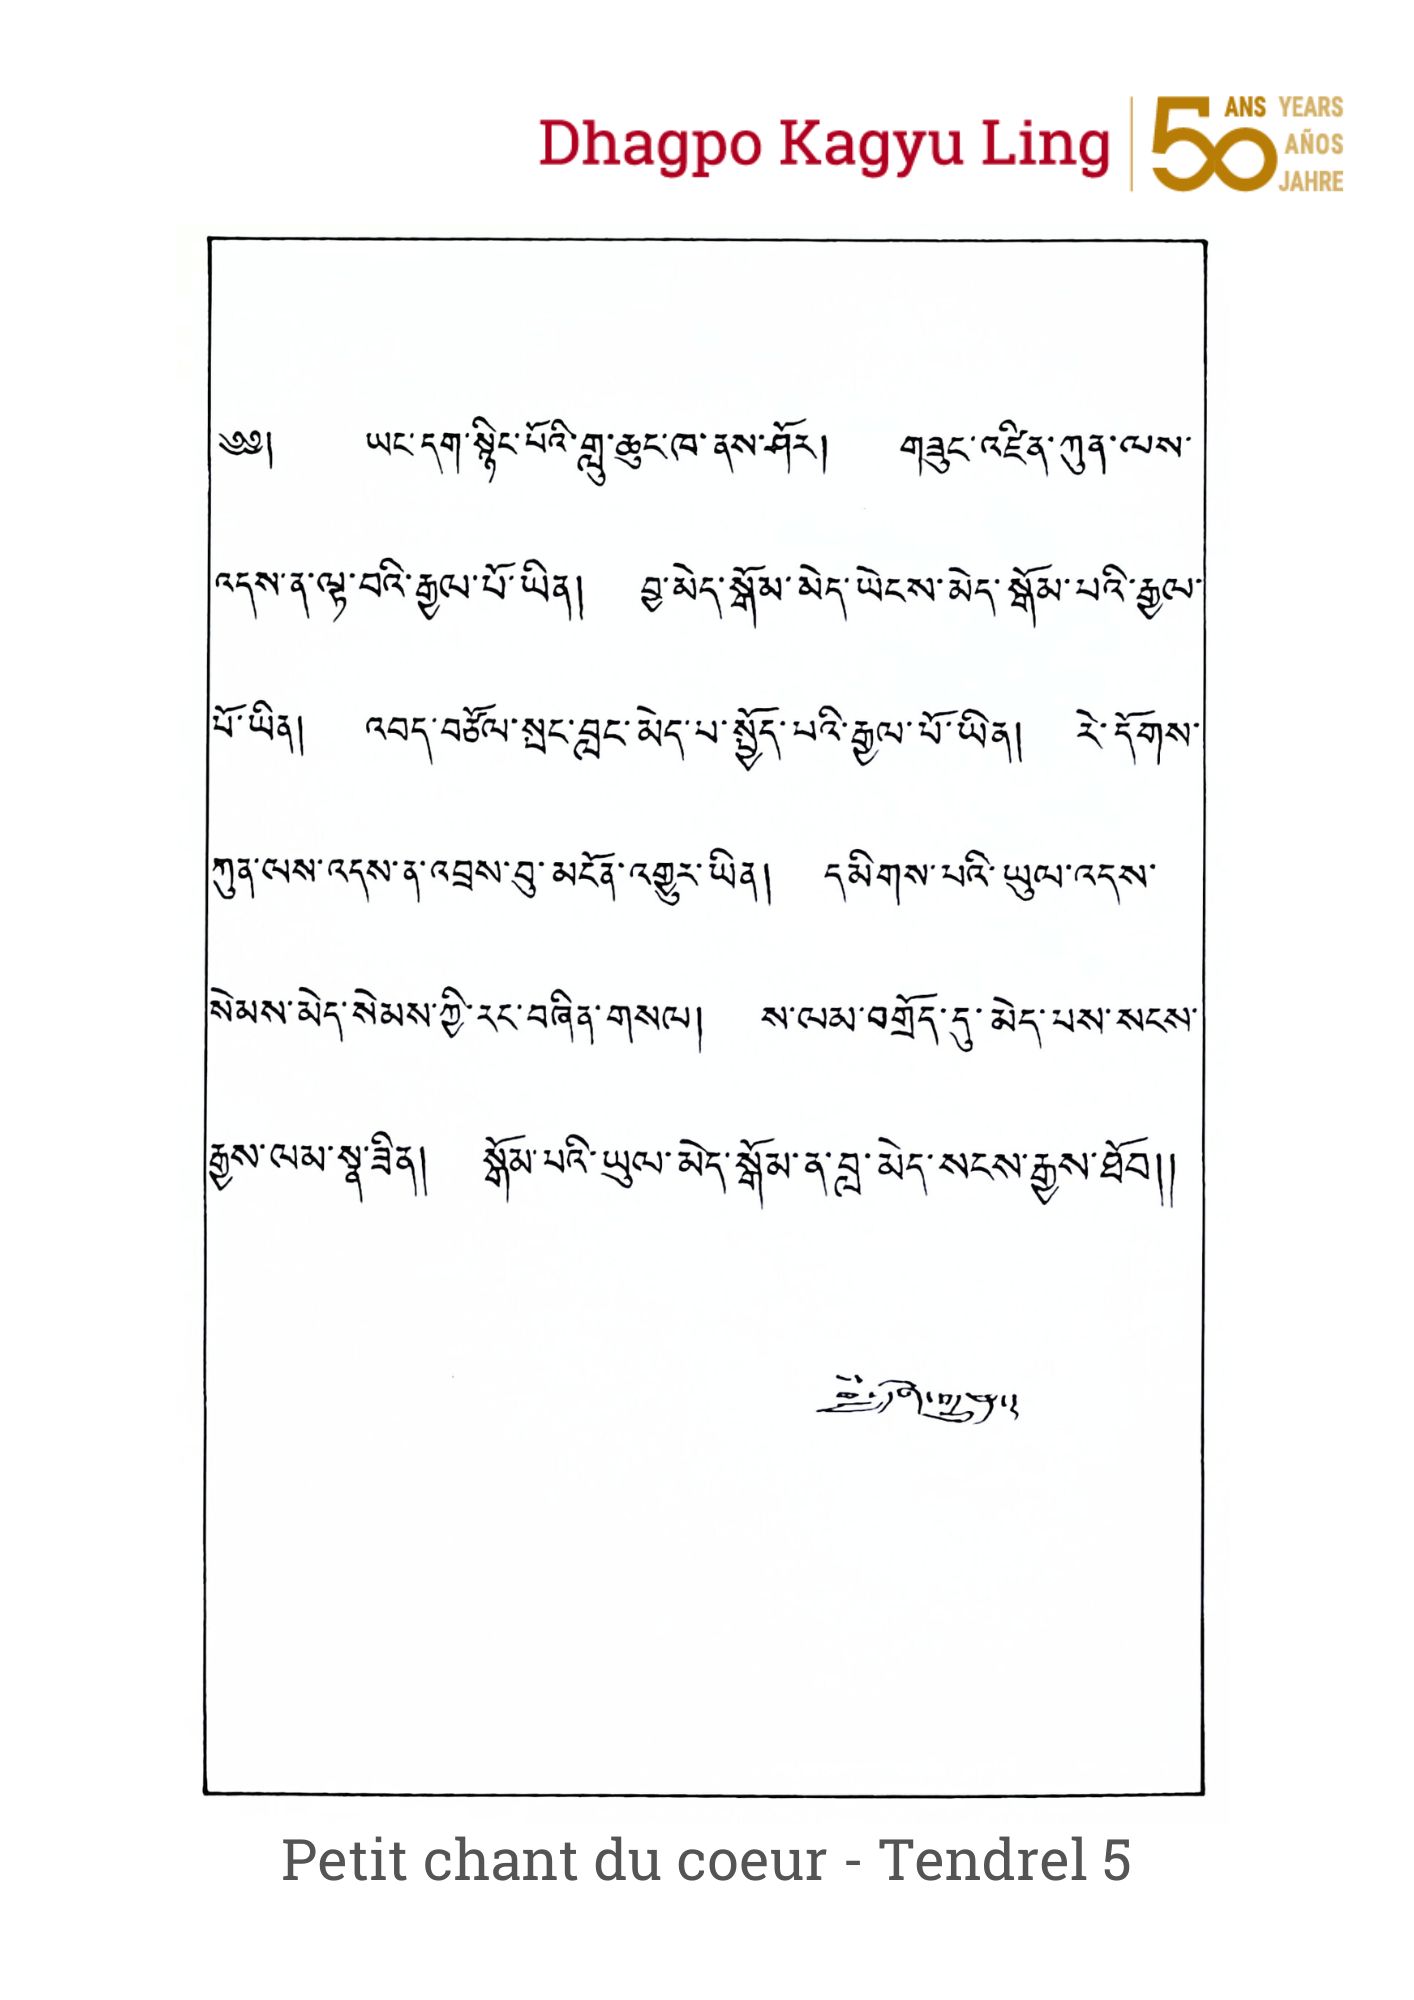 Dhagpo Kagyu Ling
50 ANS YEARS
AÑOS
JAHRE
༄༅། ཡང་དག་སྙིང་པོའི་གླུ་ཆུང་ཁ་ནས་ཤོར། གཟུང་འཛིན་ཀུན་ལས་
འདས་ན་ལྟ་བའི་རྒྱལ་པོ་ཡིན། བྱ་མེད་སྒོམ་མེད་ཡེངས་མེད་སྒོམ་པའི་རྒྱལ་
པོ་ཡིན། འབད་བཙོལ་སྤང་བླང་མེད་པ་སྤྱོད་པའི་རྒྱལ་པོ་ཡིན། རེ་དོགས་
ཀུན་ལས་འདས་ན་འབྲས་བུ་མངོན་འགྱུར་ཡིན། དམིགས་པའི་ཡུལ་འདས་
སེམས་མེད་སེམས་ཀྱི་རང་བཞིན་གསལ། ས་ལམ་བགྲོད་དུ་མེད་པས་སངས་
རྒྱས་ལམ་སྣ་ཟིན། སྒོམ་པའི་ཡུལ་མེད་སྒོམ་ན་བླ་མེད་སངས་རྒྱས་ཐོབ།།
Petit chant du coeur - Tendrel 5